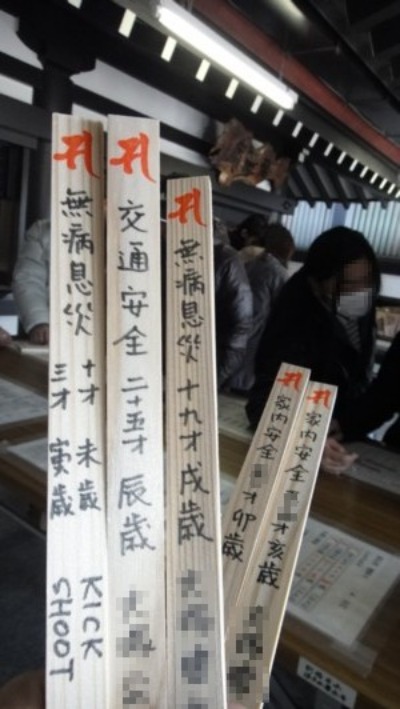 無病息災
十才 未歳 KICK
三才 寅歳 SHOOT
交通安全 二十五才 辰歳
無病息災 十九才 戌歳
家内安全 才 卯歳
家内安全 才 亥歳